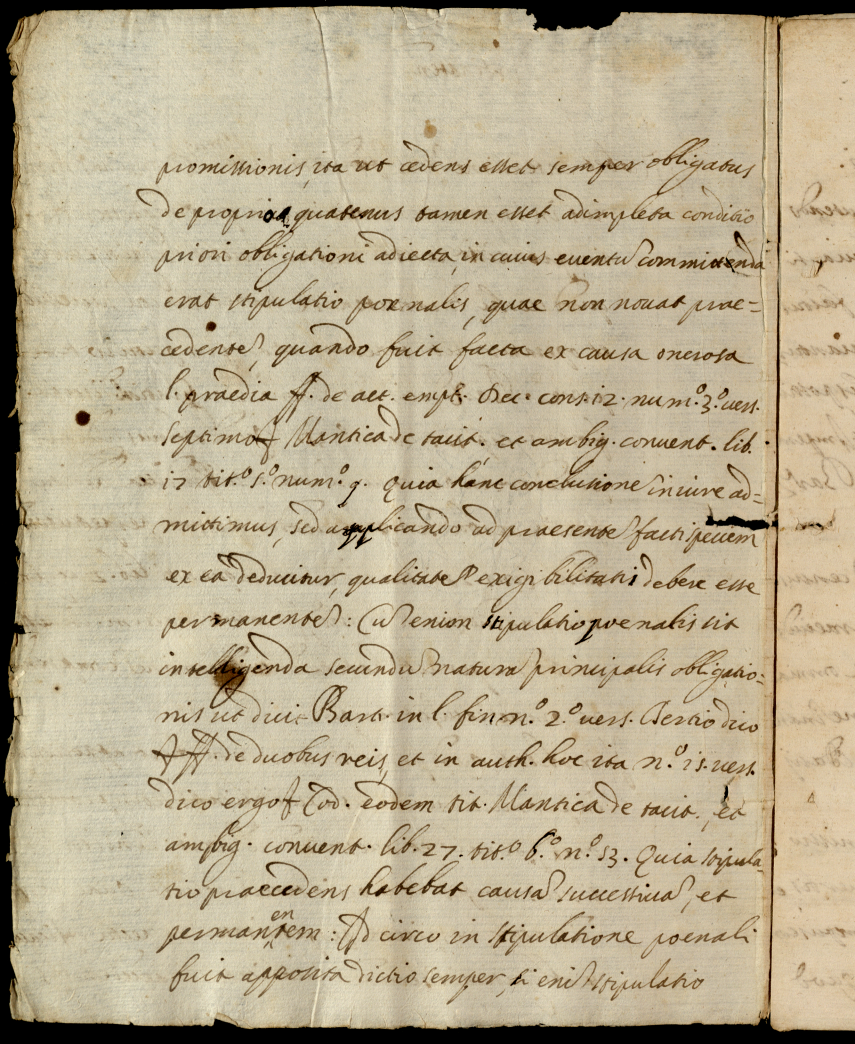 promissionis, ita ut cedens esset semper obligatus
de propria quatenus tamen esset adimpleta conditio
priori obligationi adiecta, in cuius eventu committenda
erat stipulatio poenalis, quae non novat prae=
cedente, quando fuit facta ex causa onerosa
l. praedia ff. de act. empt. Dec. cons. 12. num.º 3.º vers.
septimo Mantica de tacit. et ambig. convent. lib.
17 tit.º 5.º num.º 9. Quia hanc conclusione in iure ad=
mittimus, sed applicando ad praesente facti speciem
ex ea deducitur, qualitate exigibilitatis debere esse
permanente: Cu enim stipulatio poenalis sit
intelligenda secundu natura principalis obligatio=
nis ut dicit Bart. in l. fin. n.º 2.º vers. Tertio dico
ff. de duobus reis, et in auth. hoc ita n.º 15. vers.
dico ergo Cod. eodem tit. Mantica de tacit., et
ambig. convent. lib. 27. tit.º 6.º n.º 53. Quia stipula=
tio praecedens habebat causa successiva, et
permanentem: Id circo in stipulatione poenali
fuit apposita dictio semper, si eni stipulatio